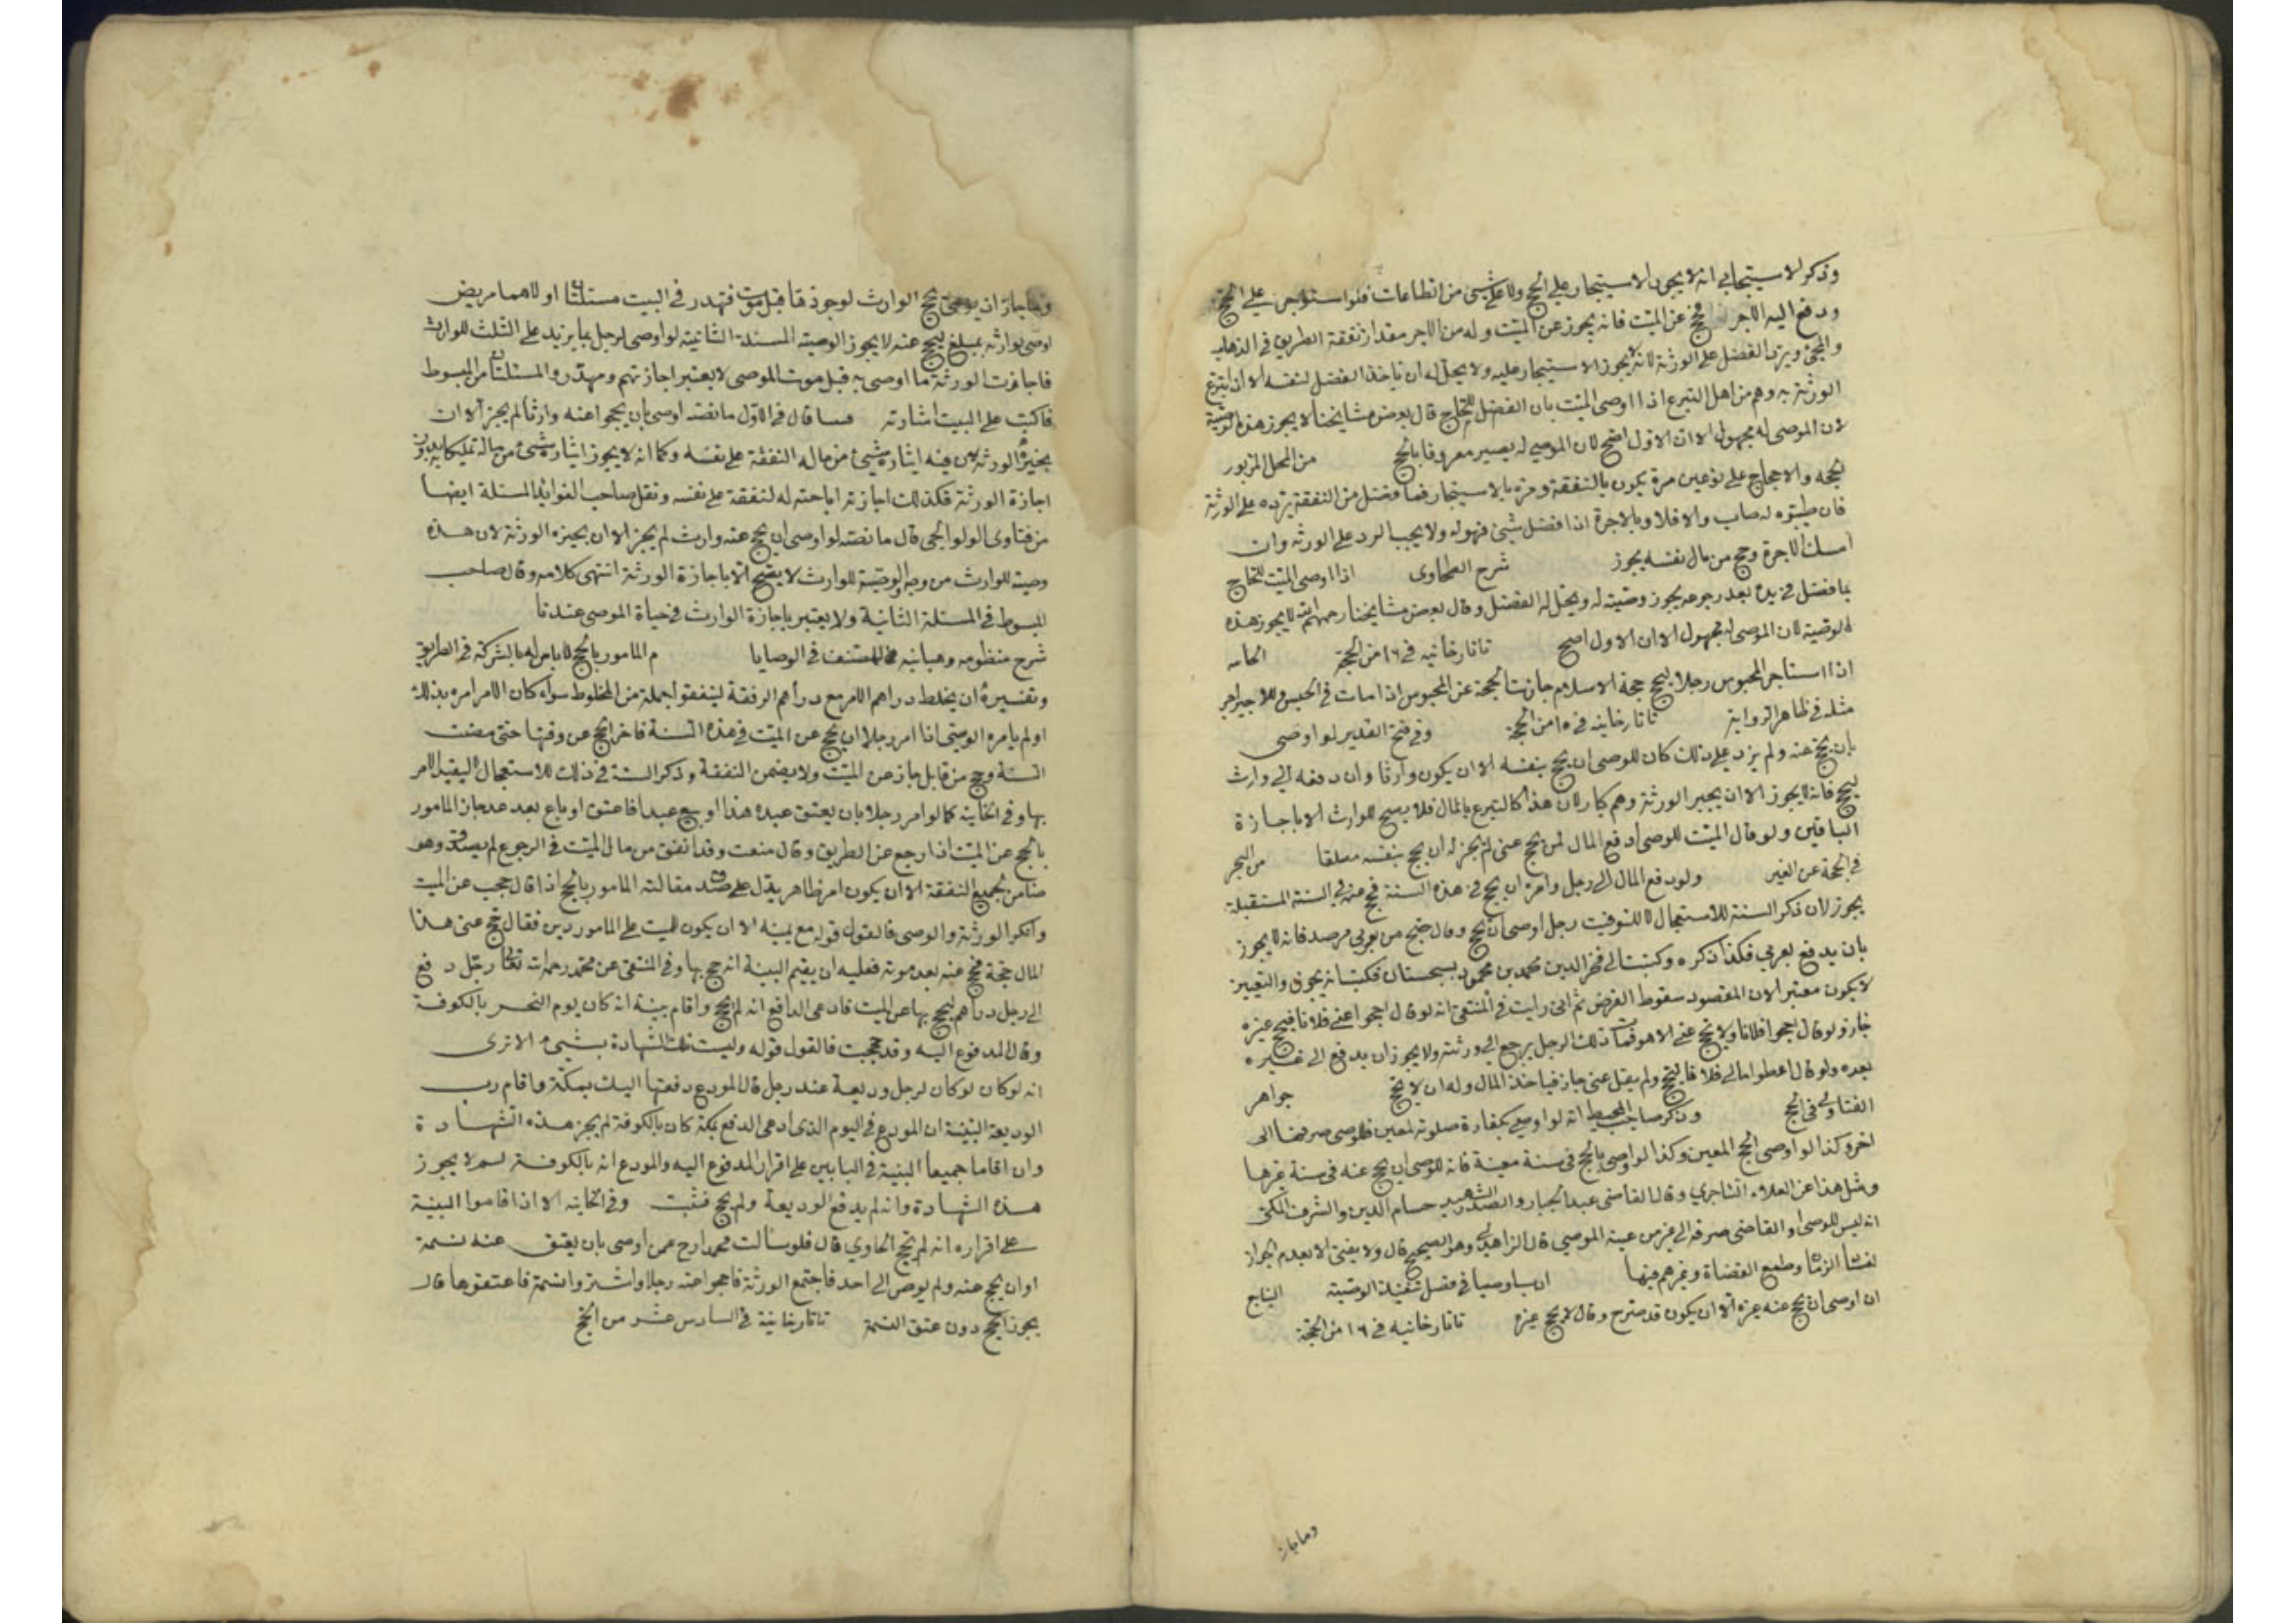 وذكر الاسبيجابي انه لا يجوز الاستيجار على الحج ولا على شيئ من الطاعات فلو استوجر على الحج
ودفع اليه الاجر فحج عن الميت فانه يجوز عن الميت وله من الاجر مقدار نفقة الطريق في الذهاب
والمجئ ويرد الفضل على الورثة لانه لا يجوز الاستيجار عليه ولا يحل له ان ياخذ الفضل لنفسه الا ان يتبرع
الورثة به وهم من اهل التبرع اذا اوصى الميت بان الفضل للحاج قال بعض مشايخنا لا يجوز هذه الوصية
لان الموصى له مجهول الا ان الاول اصح لان الموصى له يصير معروفا بالحج من المحل المزبور
لحجه والاحجاج على نوعين مرة يكون بالنفقة ومرة بالاستيجار فما فضل من النفقة يرده على الورثة
فان طيبوه له صاب والا فلا وبالاجرة اذا فضل شيئ فهو له ولا يجب الرد على الورثه وان
امسك الاجرة وحج من مال نفسه يجوز شرح الطحاوى اذا اوصى الميت للحاج
بما فضل في يده بعد رجوعه يجوز وصيته له ويحل له الفضل وقال بعض مشايخنا رحمهم الله لا يجوز هذه
الوصية لان الموصى له مجهول الا ان الاول اصح تاتارخانيه في ١٦ من الحجة
اذا استاجر المحبوس رجلا ليحج حجة الاسلام جازت الحجة عن المحبوس اذا مات في الحبس وللاجير اجر
مثله في ظاهر الرواية تاتارخانيه في ١٥ من الحجة وفي فتح القدير لو اوصى
بان يحج عنه ولم يزد على ذلك كان للوصى ان يحج بنفسه الا ان يكون وارثا وان دفعه الى وارث
ليحج فانه لا يجوز الا ان يجيز الورثة وهم كبار لان هذا كالتبرع بالمال فلا يصح للوارث الا باجازة
الباقين ولو قال الميت للوصى ادفع المال لمن يحج عنى لم يجز له ان يحج بنفسه مطلقا من البحر
في الحجة عن الغير ولو دفع المال الى رجل وامره ان يحج في هذه السنة فحج عنه في السنة المستقبلة
يجوز لان ذكر السنة للاستعجال لا للتوقيت رجل اوصى ان يحج
بان يدفع لغربي فكذا ذكره وكتبت الى فخر الدين محمد بن محمود بسجستان فكتب انه يجوز والتعيين
لا يكون معتبرا لان المقصود سقوط الفرض ثم انى رايت في المنتقى انه لو قال احجوا عنى فلانا فحج غيره
جاز ولو قال احجوا فلانا ولا يحج عنى الا هو فمات ذلك الرجل يرجع الى ورثته ولا يجوز ان يدفع الى غيره
بعده ولو قال اعطوا مالى فلانا ليحج ولم يقل عنى جاز فياخذ المال وله ان لا يحج جواهر
الفتاوى في الحج وذكر صاحب المحيط انه لو اوصى بكفارة صلوته لمعين فللوصى صرفها الى
اخر وكذا لو اوصى الحج المعين وكذا لو اوصى بالحج في سنة معينة فانه للوصى ان يحج عنه في سنة غيرها
ومثل هذا عن العلاء التاجري وقال القاضى عبد الجبار والصدر الشهيد حسام الدين والشرف المكى
انه ليس للوصى او القاضى صرفه الى غير من عينه الموصى قال الزاهدى وهو الصحيح قال ولا يفتى الا بعدم الجواز
لفساد الزمان وطمع القضاة وغيرهم فيها في فصل تنفيذ الوصية
ان اوصى ان يحج عنه غيره الا ان يكون قد صرح وقال لا يحج غيره تاتارخانيه في ١٦ من الحجة
وما جاز
وما جاز ان يوصى بحج الوارث
اوصى لوارثه بمبلغ ليحج عنه لا يجوز الوصية المسئلة الثانية لو اوصى لرجل بما يزيد على الثلث للوارث
فاجازت الورثة ما اوصى به قبل موت الموصى لا يعتبر اجازتهم ومهدر والمسئلتان من المبسوط
فاكتب على البيت اشارته قال في الاول ما نصه اوصى بان يحجوا عنه وارثا لم يجز الا ان
يجيزه الورثة لان فيه ايثاره بشيئ من ماله النفقة على نفسه وكما انه لا يجوز ايثاره بشيئ من ماله تمليكا بدون
اجازة الورثة فكذلك اجازته اباحته له لنفقة على نفسه ونقل صاحب الفوائد المسئلة ايضا
من فتاوى الولوالجى قال ما نصه لو اوصى ان يحج عنه وارث لم يجز الا ان يجيزه الورثة لان هذه
وصية للوارث من وجه والوصية للوارث لا يصح الا باجازة الورثة انتهى كلامه وقال صاحب
المبسوط في المسئلة الثانية ولا يعتبر باجازة الوارث في حياة الموصى عندنا
شرح منظومه وهبانيه للمصنف في الوصايا م المامور بالحج لا باس له بالشركة في الطريق
وتفسيره ان يخلط دراهم الامر مع دراهم الرفقة لينفقوا جملة من المخلوط سواء كان الامر امره بذلك
او لم يامره الوصى اذا امر رجلا ان يحج عن الميت في هذه السنة فاخر الحج عن وقتها حتى مضت
السنة وحج من قابل جاز عن الميت ولا يضمن النفقة وذكر السنة في ذلك للاستعجال لا لتقيد الامر
بها وفي الخانية كما لو امر رجلا بان يعتق عبده هذا او بيع عبد فاعتق او باع بعد غد جاز المامور
بالحج عن الميت اذا رجع عن الطريق وقال منعت وقد انفق من مال الميت في الرجوع لم يصدق وهو
ضامن لجميع النفقة الا ان يكون امر ظاهر يدل على صدق مقالته المامور بالحج اذا قال حججت عن الميت
وانكر الورثة والوصى فالقول قوله مع يمينه الا ان يكون للميت على المامور دين فقال حج عنى هذا
المال حجة فحج عنه بعد موته فعليه ان يقيم البينة انه حج بها وفي المنتقى عن محمد رحمه الله تعالى رجل دفع
الى رجل دراهم ليحج بها عن الميت فادعى الدافع انه لم يحج واقام بينة انه كان يوم النحر بالكوفة
وقال المدفوع اليه وقد حججت فالقول قوله وليست تلك الشهادة بشيئ الا ترى
انه لو كان لو كان لرجل وديعة عند رجل قال المودع دفعتها اليك بمكة واقام رب
الوديعة البينة ان المودع في اليوم الذى ادعى الدفع بمكة كان بالكوفة لم يجز هذه الشهادة
وان اقاما جميعا البينة في البابين على اقرار المدفوع اليه والمودع انه بالكوفة لم لا يجوز
هذه الشهادة وانه لم يدفع الوديعة ولم يحج فثبت وفي الخانيه الا اذا قاموا البينة
على اقراره انه لم يحج الحاوي قال فلو سالت محمدا رح عمن اوصى بان يعتق عنه نسمة
او ان يحج عنه ولم يوص الى احد فاجتمع الورثة فاحجوا عنه رجلا واشتروا نسمة فاعتقوها قال
يجوز الحج دون عتق النسمة تاتارخانية في السادس عشر من الحج